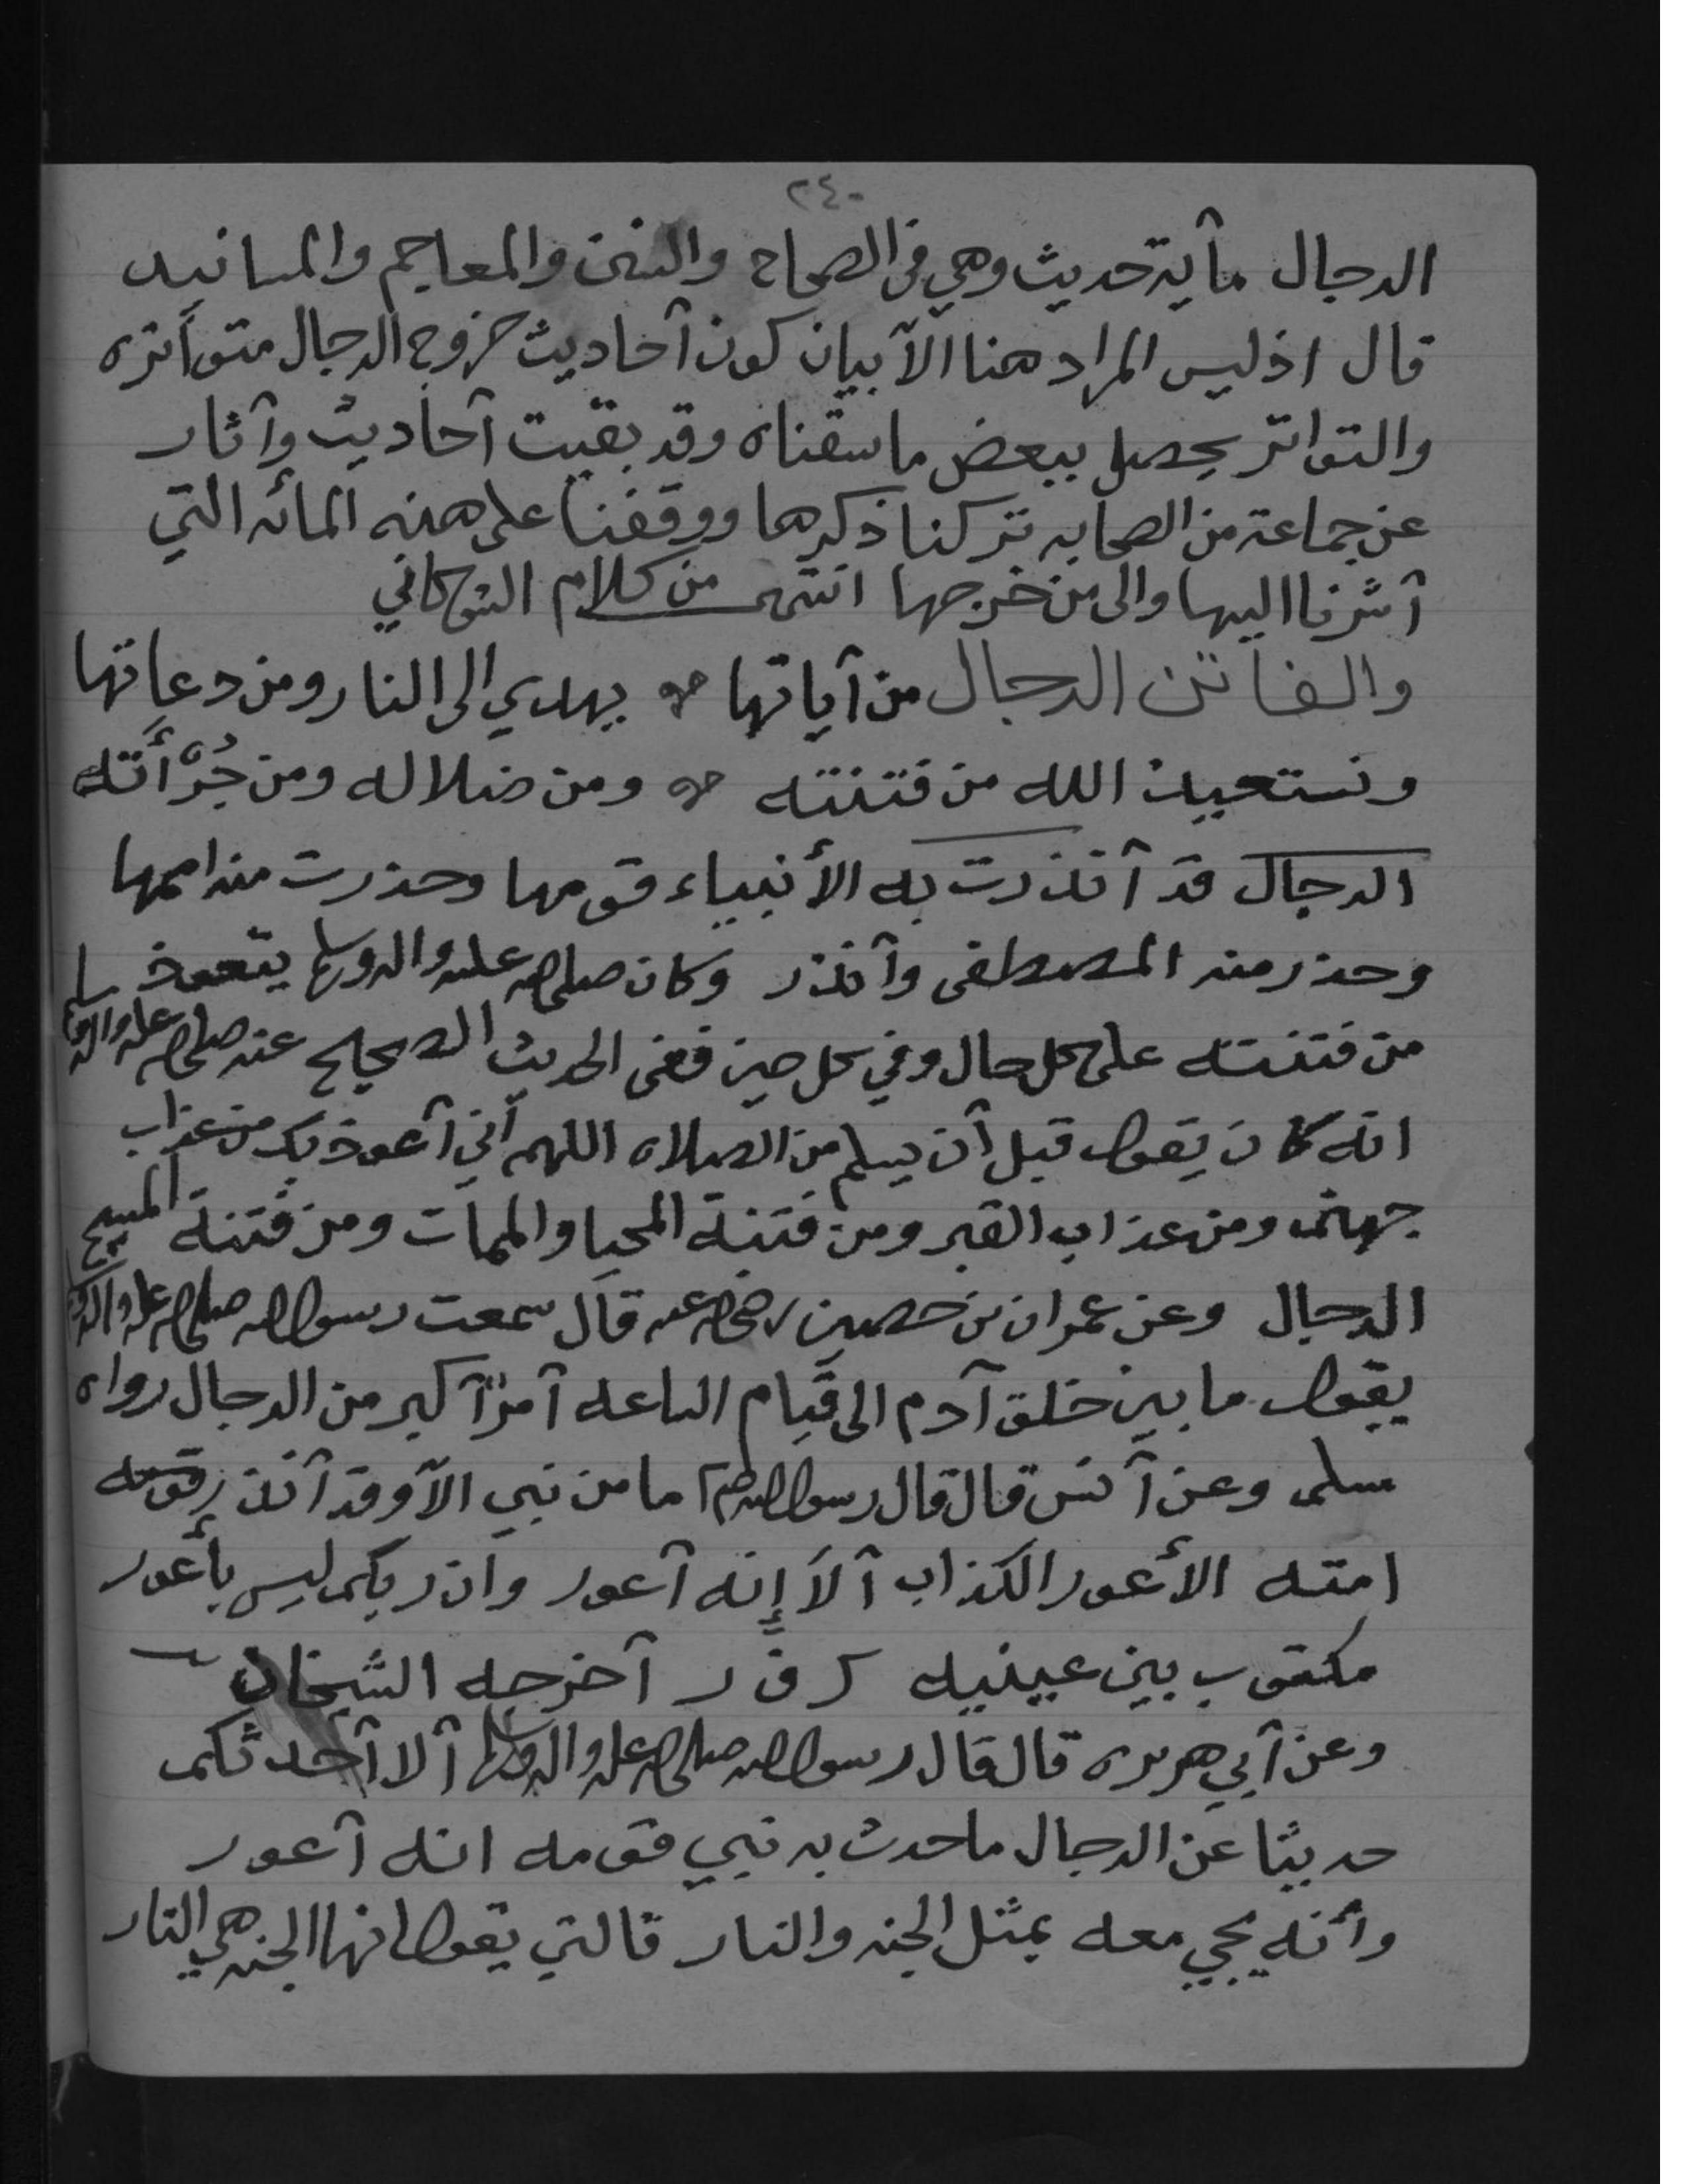 ٢٤٠
الدجال مأية حديث وهي في الصحاح والسنن والمعاجم والمسانيد
قال اذ ليس المراد هنا الآ بيان كون آحاديث خروج الدجال متوآتره
والتواتر يحصل ببعض ما سقناه وقد بقيت آحاديث وآثار
عن جماعة من الصحابه تركنا ذكرها ووقفنا على هذه المائه التي
آشرنا اليها والى من خرجها انتهى من كلام الشوكاني
والفاتن الدجال من آياتها ۞ يهدي الى النار ومن دعاتها
ونستعيذ الله من فتنته ۞ ومن ضلاله ومن جُرْأَته
الدجال قد آنذرت به الأنبياء قومها وحذرت منه اممها
وحذر منه المصطفى وآنذر وكان صلى الله عليه واله وسلم يتعوذ
من فتنته على كل حال وفي كل حين ففي الحديث الصحيح عنه صلى الله عليه واله وسلم
انه كان يقول قبل آن يسلم من الصلاه اللهم آني آعوذ بك من عذاب
جهنم ومن عذاب القبر ومن فتنة المحيا والممات ومن فتنة المسيح
الدجال وعن عمران بن حصين رضي الله عنه قال سمعت رسول الله صلى الله عليه واله
يقول ما بين خلق آدم الى قيام الساعه آمرٌ آكبر من الدجال رواه
مسلم وعن آنس قال قال رسول الله صلم ما من نبي الآ وقد آنذر قومه
امته الأعور الكذاب آلا إنه آعور وان ربكم ليس بأعور
مكتوب بين عينيه ك ف ر آخرجه الشيخان
وعن آبي هريره قال قال رسول الله صلى الله عليه واله وسلم آلا آحدثكم
حديثا عن الدجال ما حدث به نبي قومه انه آعور
وأنه يجي معه بمثل الجنه والنار فالتي يقول انها الجنه هي النار